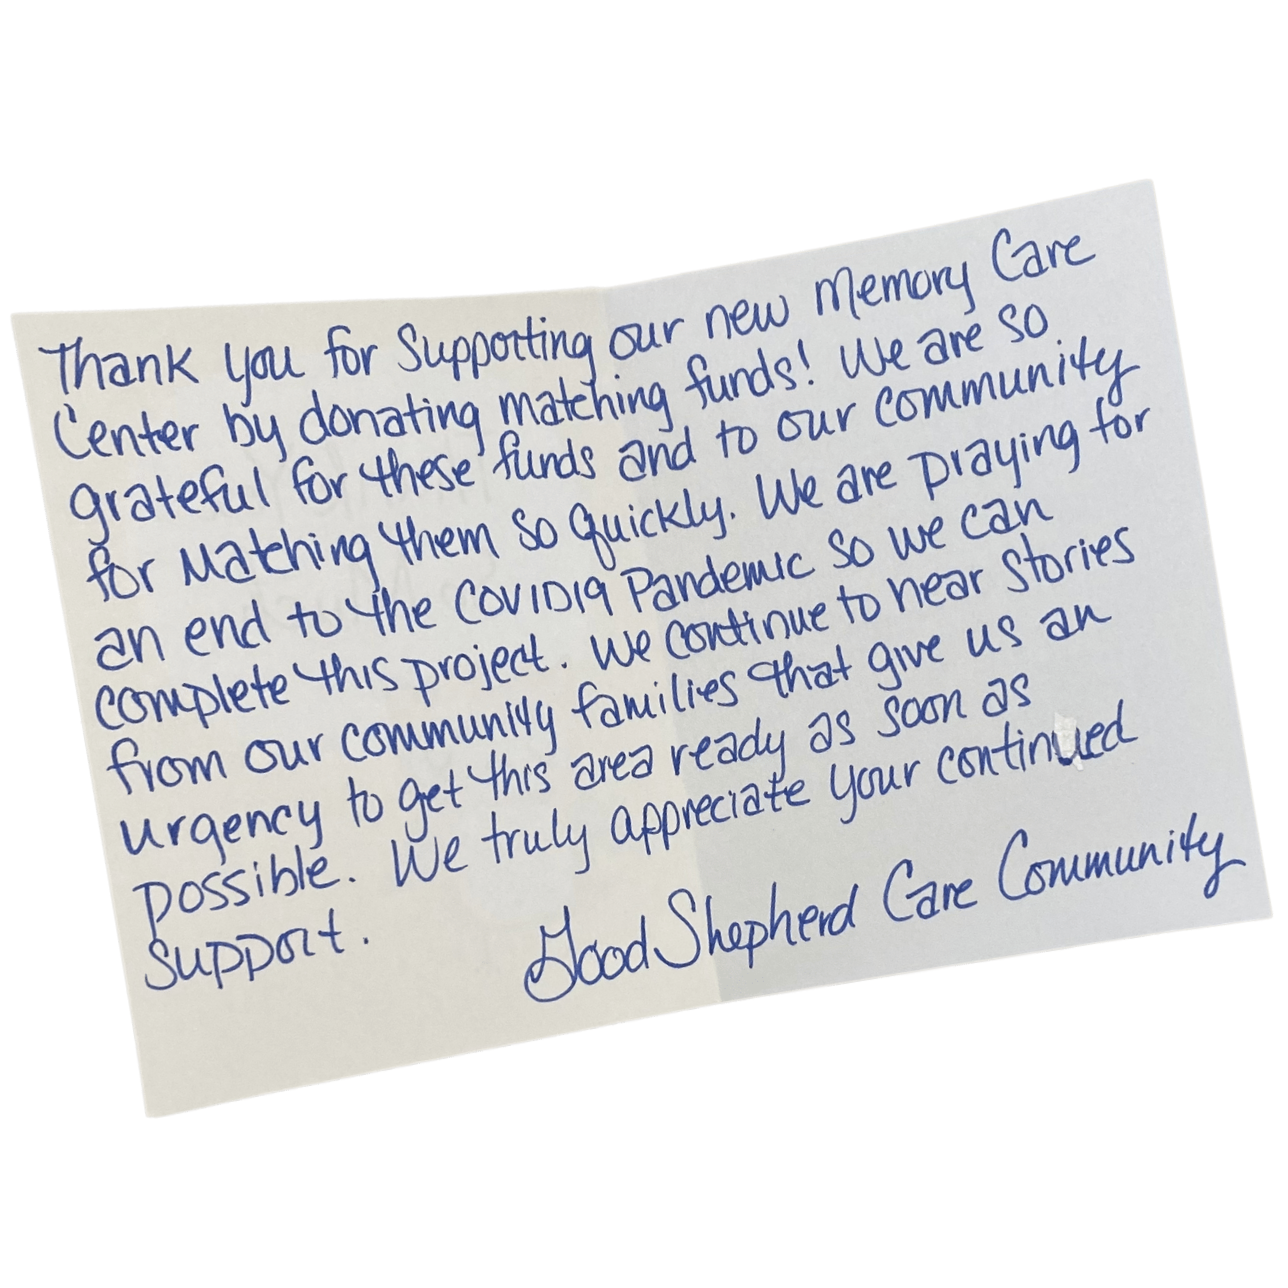 Thank you for Supporting our new Memory Care
Center by donating matching funds! We are so
grateful for these funds and to our community
for Matching them so quickly. We are praying for
an end to the COVID19 Pandemic so we can
complete this project. We continue to hear stories
from our community families that give us an
urgency to get this area ready as soon as
possible. We truly appreciate your continued
support.
Good Shepherd Care Community